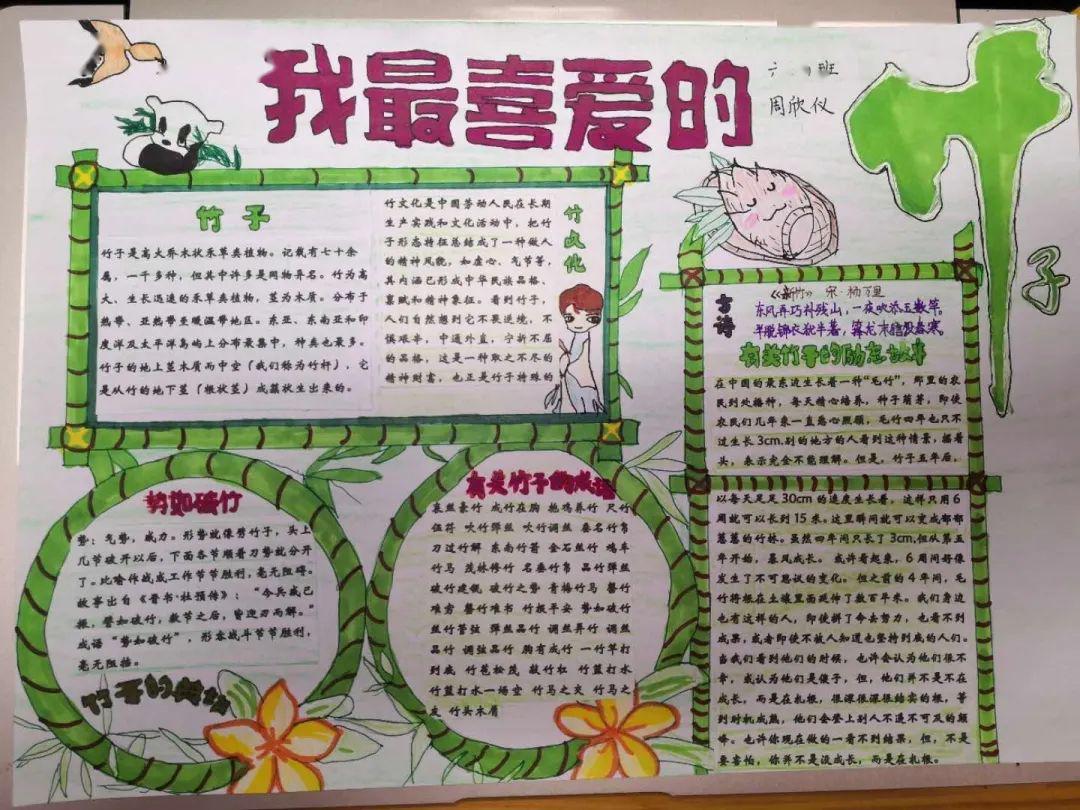 我最喜爱的
竹
子
六 班
周欣仪
竹子
竹子是高大乔木状禾草类植物。记载有七十余
属,一千多种,但其中许多是同物异名。竹为高
大、生长迅速的禾草类植物,茎为木质。分布于
热带、亚热带至暖温带地区。东亚、东南亚和印
度洋及太平洋岛屿上分布最集中,种类也最多。
竹子的地上茎木质而中空(我们称为竹杆),它
是从竹的地下茎(根状茎)成簇状生出来的。
竹文化
竹文化是中国劳动人民在长期
生产实践和文化活动中,把竹
子形态特征总结成了一种做人
的精神风貌,如虚心、气节等,
其内涵已形成中华民族品格、
禀赋和精神象征。看到竹子,
人们自然想到它不畏逆境,不
惧艰辛,中通外直,宁折不屈
的品格,这是一种取之不尽的
精神财富,也正是竹子特殊的
古诗
《新竹》宋·杨万里
东风弄巧补残山,一夜吹添玉数竿。
半脱锦衣犹半著,箨龙未信没春寒。
有关竹子的励志故事
在中国的最东边生长着一种“毛竹”,那里的农
民到处播种,每天精心培养,种子萌芽,即使
农民们几年来一直悉心照顾,毛竹四年也只不
过生长3cm.别的地方的人看到这种情景,摇着
头,表示完全不能理解。但是,竹子五年后,
以每天足足30cm的速度生长着,这样只用6
周就可以长到15米。这里瞬间就可以变成郁郁
葱葱的竹林。虽然四年间只长了3cm,但从第五
年开始,暴风成长。或许看起来,6周间好像
发生了不可思议的变化,但之前的4年间,毛
竹将根在土壤里面延伸了数百平米。我们身边
也有这样的人,即使拼了命去努力,也看不到
成果,或者即使不被人知道也坚持到底的人们。
当我们看到他们的时候,也许会认为他们很不
幸,或认为他们是傻子,但,他们并不是不在
成长,而是在扎根,很深很深很结实的根,等
到时机成熟,他们会登上别人不遥不可及的巅
峰。也许你现在做的一看不到结果,但,不是
要害怕,你并不是没成长,而是在扎根。
势如破竹
势:气势,威力。形势就像劈竹子,头上
几节破开以后,下面各节顺着刀势就分开
了。比喻作战或工作节节胜利,毫无阻碍。
故事出自《晋书·杜预传》:“今兵威已
振,譬如破竹,数节之后,皆迎刃而解。”
成语“势如破竹”,形容战斗节节胜利,
毫无阻挡。
竹子的典故
有关竹子的成语
哀丝豪竹 成竹在胸 抱鸡养竹 尺竹
伍符 吹竹弹丝 吹竹调丝 垂名竹帛
刀过竹解 东南竹箭 金石丝竹 鸠车
竹马 茂林修竹 名垂竹帛 品竹弹丝
破竹建瓴 破竹之势 青梅竹马 罄竹
难穷 罄竹难书 竹报平安 势如破竹
丝竹管弦 弹丝品竹 调丝弄竹 调丝
品竹 调弦品竹 胸有成竹 一竹竿打
到底 竹苞松茂 敲竹杠 竹篮打水
竹篮打水一场空 竹马之交 竹马之
友 竹头木屑